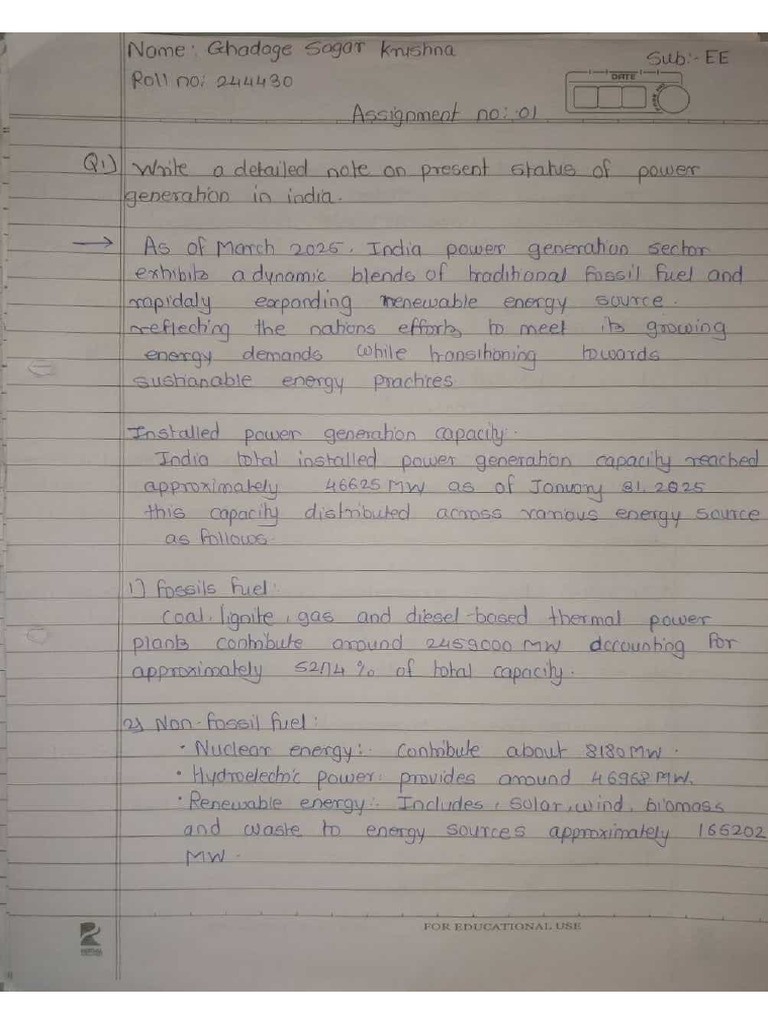 Name: Ghadage Sagar Krushna
Sub:- EE
Roll no: 244430
DATE
Assignment no: 01
Q1) Write a detailed note on present status of power
generation in india.
→ As of March 2025. India power generation sector
exhibits a dynamic blends of traditional fossil fuel and
rapidaly expanding renewable energy source.
reflecting the nations efforts to meet its growing
energy demands while transitioning towards
sustianable energy practices
Installed power generation capacity.
India total installed power generation capacity reached
approximately 46625 MW as of January 31, 2025
this capacity distributed across various energy source
as follows.
1) Fossils fuel:
Coal, lignite, gas and diesel-based thermal power
plants contribute around 2459000 MW accounting for
approximately 52174 % of total capacity.
2) Non-fossil fuel:
• Nuclear energy:- Contribute about 8180 MW.
• Hydroelectric power: provides around 46968 MW.
• Renewable energy:- Includes, solar, wind, biomass
and waste to energy sources approximately 165202
MW.
FOR EDUCATIONAL USE